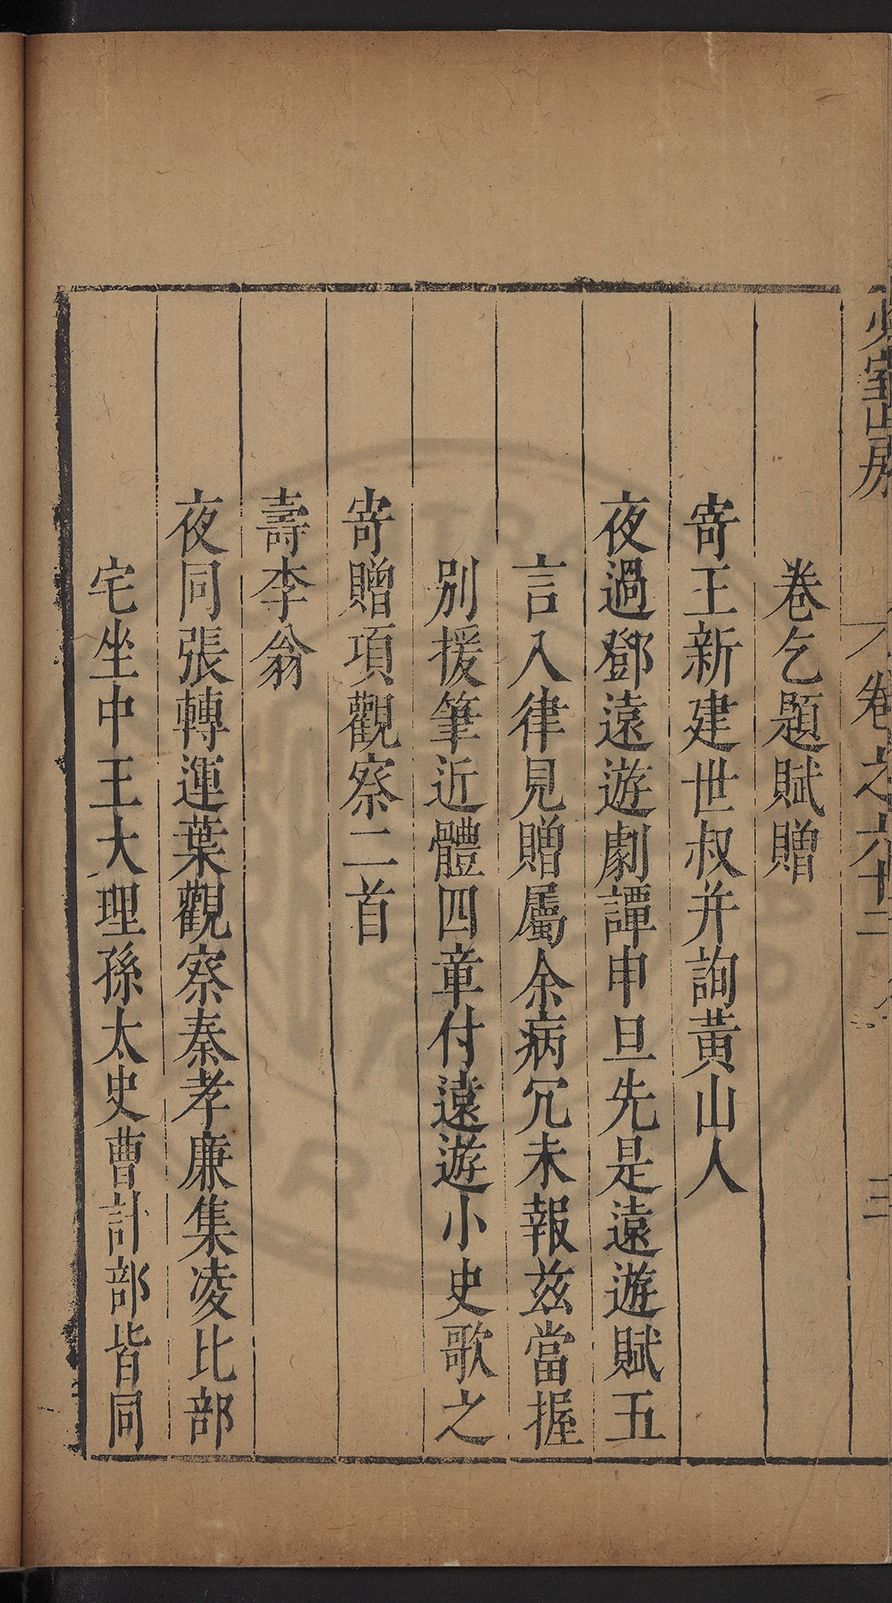 少室山房 卷之六十二 三
卷乞題賦贈
寄王新建世叔并詢黃山人
夜過鄧遠遊劇譚申旦先是遠遊賦五
言入律見贈屬余病冗未報兹當握
別援筆近體四章付遠遊小史歌之
寄贈項觀察二首
壽李翁
夜同張轉運葉觀察秦孝廉集凌比部
宅坐中王大理孫太史曹計部皆同